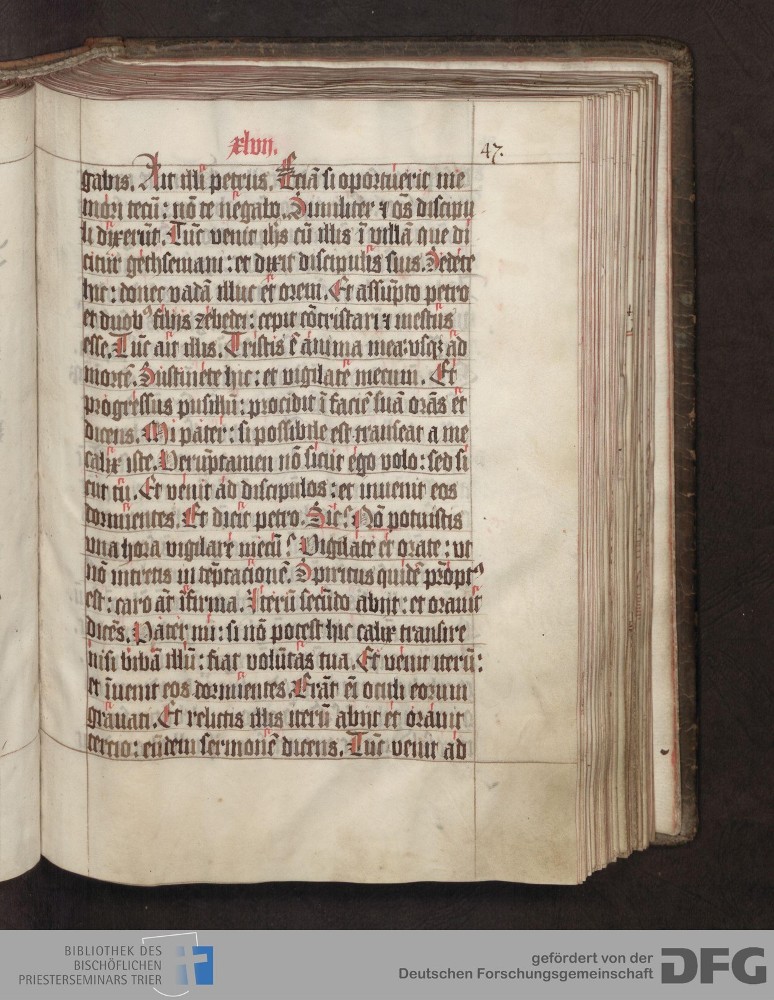 xlvij.
47.
gabis. Ait illi petrus. Eciā si oportuerit me
mori tecū: nō te negabo. Similiter ⁊ oēs discipu
li dixerūt. Tūc venit ihs cū illis ī villā que di
citur gethsemani: et dixit discipulis suis. Sedete
hic: donec vadā illuc et orem. Et assūpto petro
et duobꝰ filijs zebedei: cepit cōtristari ⁊ mestus
esse. Tūc ait illis. Tristis ē anima mea: vsqꝫ ad
mortē. Sustinete hic: et vigilate mecum. Et
progressus pusillū: procidit ī faciē suā orās et
dicens. Mi pater: si possibile est transeat a me
calix iste. Verūptamen nō sicut ego volo: sed si
cut tu. Et venit ad discipulos: et inuenit eos
dormientes. Et dicit petro. Sic? Nō potuistis
vna hora vigilare mecū? Vigilate et orate: vt
nō intretis in tēptacionē. Spiritus quidē prōptꝰ
est: caro aūt īfirma. Iterū secūdo abijt: et orauit
dicēs. Pater mi: si nō potest hic calix transire
nisi bibā illū: fiat volūtas tua. Et venit iterū:
et īuenit eos dormientes. Erāt em̄ oculi eorum
grauati. Et relictis illis iterū abijt et orauit
tercio: eūdem sermonē dicens. Tūc venit ad
BIBLIOTHEK DES
BISCHÖFLICHEN
PRIESTERSEMINARS TRIER
gefördert von der
Deutschen Forschungsgemeinschaft
DFG